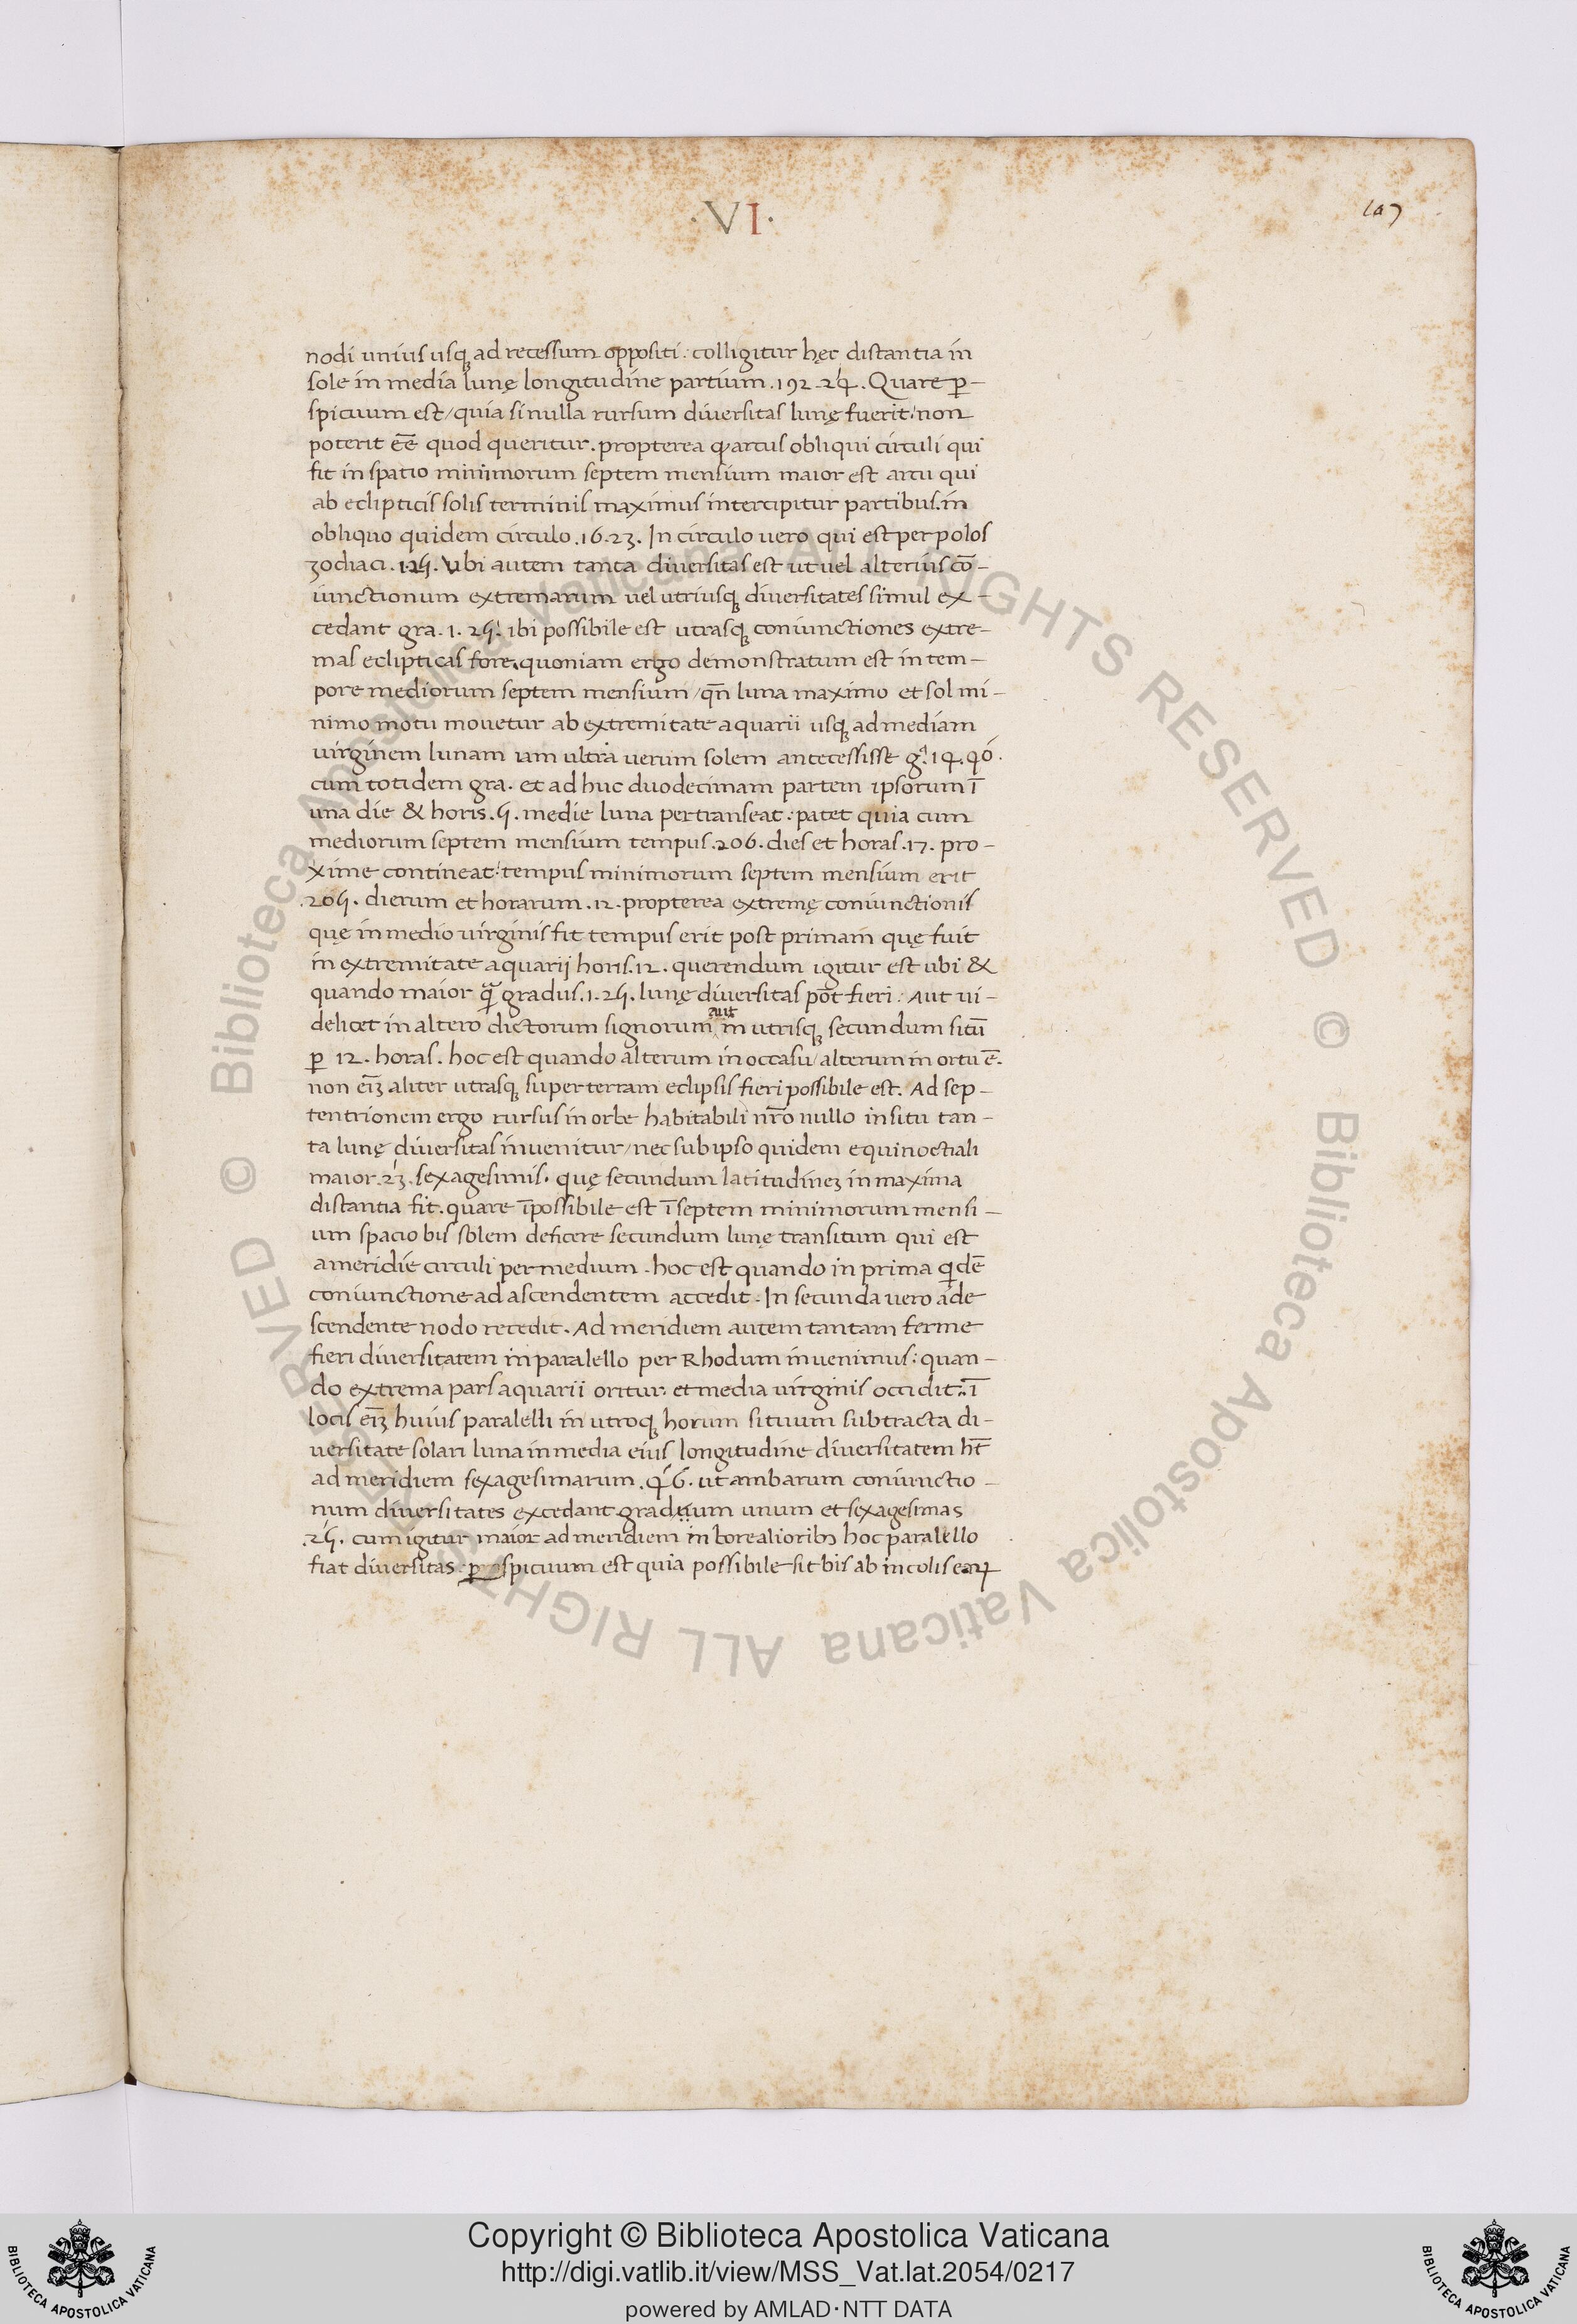 ·VI·
107
nodi unius usqꝫ ad recessum oppositi: colligitur hęc distantia in
sole in media lunę longitudine partium .192.24. Quare ꝑ-
spicuum est/ quia si nulla rursum diversitas lunę fuerit: non
poterit eē̄ quod queritur. propterea ꝙ arcus obliqui circuli qui
fit in spatio minimorum septem mensium maior est arcu qui
ab eclipticis solis terminis maximus intercipitur partibus. in
obliquo quidem circulo .16.23. In circulo uero qui est per polos
zodiaci .1.25. Vbi autem tanta diversitas est ut vel alterius cō-
iunctionum extremarum vel utriusqꝫ diversitates simul ex-
cedant gra. 1. 25. ibi possibile est utrasqꝫ coniunctiones extre-
mas eclipticas fore. quoniam ergo demonstratum est in tem-
pore mediorum septem mensium/ qn̄ luna maximo et sol mi-
nimo motu movetur ab extremitate aquarii usqꝫ ad mediam
virginem lunam iam ultra uerum solem antecessisse gᵃ. 14.40.
cum totidem gra. et ad huc duodecimam partem ipsorum ī
una die & horis .5. medie luna pertranseat: patet quia cum
mediorum septem mensium tempus .206. dies et horas .17. pro-
xime contineat: tempus minimorum septem mensium erit
.205. dierum et horarum .12. propterea extremę coniunctionis
quę in medio virginis fit tempus erit post primam quę fuit
in extremitate aquarij horis .12. querendum igitur est ubi &
quando maior qᷓ gradus .1.25. lunę diversitas pōt fieri: Aut ui-
delicet in altero dictorum signorum aut in utrisqꝫ secundum sitū
ꝑ 12. horas. hoc est quando alterum in occasu/ alterum in ortu ē.
non eīꝫ aliter utrasqꝫ super terram eclipsis fieri possibile est. Ad sep-
tentrionem ergo rursus in orbe habitabili nr̄o nullo in situ tan-
ta lunę diversitas invenitur/ nec sub ipso quidem equinoctiali
maior .23. sexagesimis. quę secundum latitudinēꝫ in maxima
distantia fit. quare īpossibile est ī septem minimorum mensi-
um spacio bis solem deficere secundum lunę transitum qui est
a meridie circuli per medium. hoc est quando in prima qͥdē
coniunctione ad ascendentem accedit. In secunda uero a de
scendente nodo recedit. Ad meridiem autem tantam ferme
fieri diversitatem in paralello per Rhodum invenimus: quan-
do extrema pars aquarii oritur. et media virginis occidit. ī
locis eīꝫ huius paralelli in utroqꝫ horum situum subtracta di-
versitate solari luna in media eius longitudine diversitatem hꝫt
ad meridiem sexagesimarum .46. ut ambarum coniunctio-
num diversitates excedant graduum unum et sexagesimas
.25. cum igitur maior ad meridiem in borealioribꝫ hoc paralello
fiat diversitas: ꝑspicuum est quia possibile sit bis ab incolis eaꝝ
Copyright © Biblioteca Apostolica Vaticana
http://digi.vatlib.it/view/MSS_Vat.lat.2054/0217
powered by AMLAD·NTT DATA